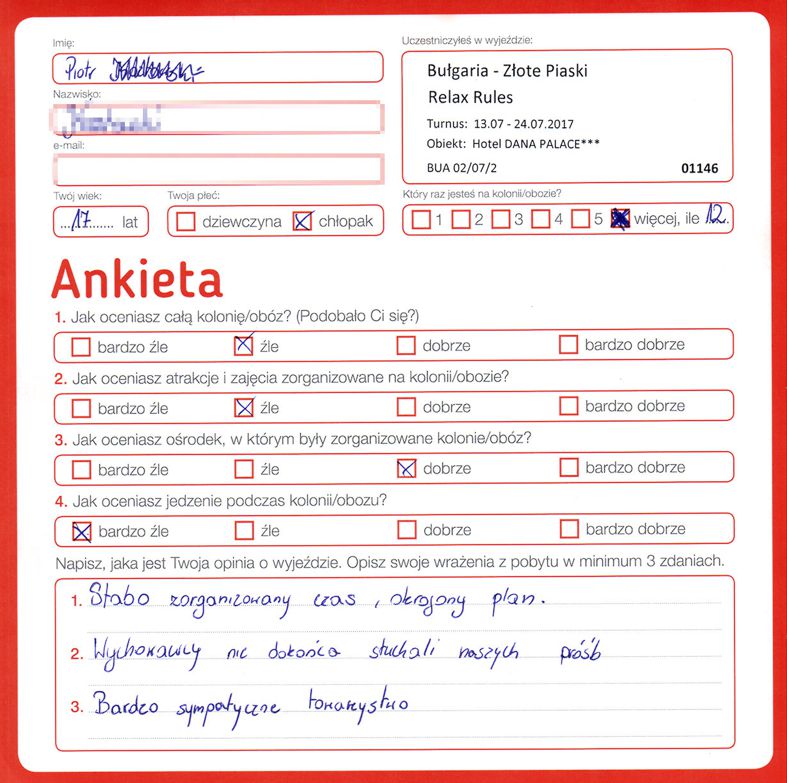 Imię:
Piotr
Nazwisko:
e-mail:
Twój wiek:
...17....... lat
Twoja płeć:
dziewczyna chłopak
Uczestniczyłeś w wyjeździe:
Bułgaria - Złote Piaski
Relax Rules
Turnus: 13.07 - 24.07.2017
Obiekt: Hotel DANA PALACE***
BUA 02/07/2 01146
Który raz jesteś na kolonii/obozie?
1 2 3 4 5 więcej, ile 12.
Ankieta
1. Jak oceniasz całą kolonię/obóz? (Podobało Ci się?)
bardzo źle źle dobrze bardzo dobrze
2. Jak oceniasz atrakcje i zajęcia zorganizowane na kolonii/obozie?
bardzo źle źle dobrze bardzo dobrze
3. Jak oceniasz ośrodek, w którym były zorganizowane kolonie/obóz?
bardzo źle źle dobrze bardzo dobrze
4. Jak oceniasz jedzenie podczas kolonii/obozu?
bardzo źle źle dobrze bardzo dobrze
Napisz, jaka jest Twoja opinia o wyjeździe. Opisz swoje wrażenia z pobytu w minimum 3 zdaniach.
1. Słabo zorganizowany czas, okrojony plan.
2. Wychowawcy nie dokońca słuchali naszych próśb
3. Bardzo sympatyczne towarzystwo